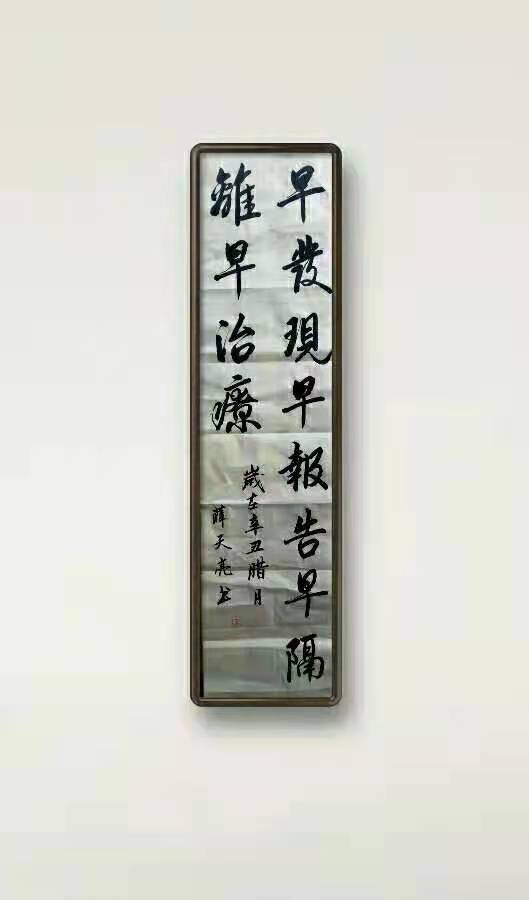 早發現早報告早隔
離早治療
歲在辛丑腊月
薛天亮书